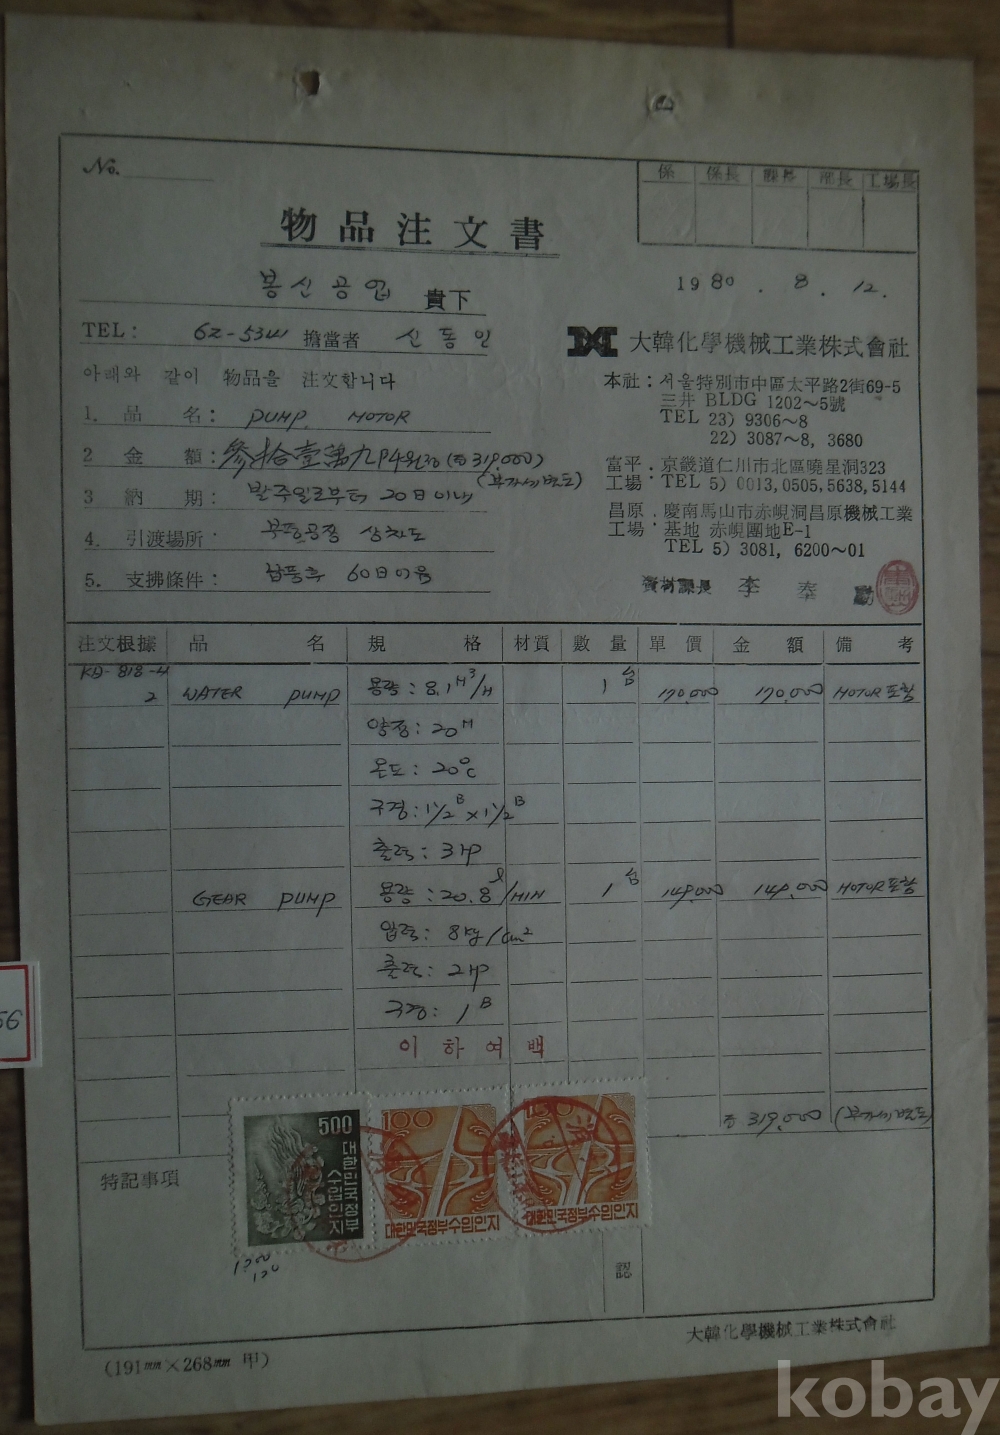 No.
係 係長 課長 部長 工場長
物品注文書
봉신공업 貴下
1980. 8. 12.
TEL: 62-5344 擔當者 신동인
大韓化學機械工業株式會社
아래와 같이 物品을 注文합니다
本社: 서울特別市中區太平路2街69-5
三井 BLDG 1202~5號
TEL 23) 9306~8
22) 3087~8, 3680
1. 品名: PUMP. MOTOR
2 金額: 參拾壹萬九阡4원정 (₩319,000)
(부가세 별도)
富平工場: 京畿道仁川市北區曉星洞323
TEL 5) 0013,0505,5638,5144
3 納期: 발주일로부터 20日이내
昌原工場: 慶南馬山市赤峴洞昌原機械工業
基地 赤峴團地E-1
TEL 5) 3081, 6200~01
4. 引渡場所: 부평공장 상차도
5. 支拂條件: 납품후 60日어음
資材課長 李奉勳
注文根據 品名 規格 材質 數量 單價 金額 備考
KD-818-4
2 WATER PUMP 용량: 8.1 M³/H 1台 170,000 170,000 MOTOR포함
양정: 20M
온도: 20℃
구경: 1½B x 1½B
출력: 3HP
GEAR PUMP 용량: 20.8 ℓ/MIN 1台 149,000 149,000 MOTOR포함
압력: 8kg/cm²
출력: 2HP
구경: 1B
이하여백
₩319,000 (부가세별도)
特記事項
500 대한민국정부수입인지
100 대한민국정부수입인지
100 대한민국정부수입인지
認
大韓化學機械工業株式會社
(191mm×268mm 甲)
56
kobay